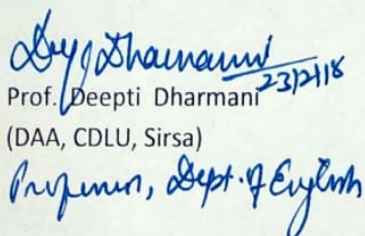 Deepti Dharmani
23/2/18
Prof. Deepti Dharmani
(DAA, CDLU, Sirsa)
Professor, Dept. of English